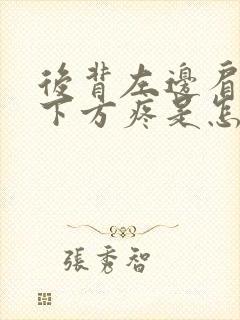 後背左邊肩
下方疼是怎
張秀智